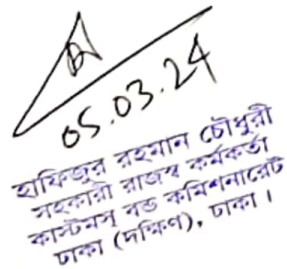 05.03.24
হাফিজুর রহমান চৌধুরী
সহকারী রাজস্ব কর্মকর্তা
কাস্টমস্ বন্ড কমিশনারেট
ঢাকা (দক্ষিণ), ঢাকা।